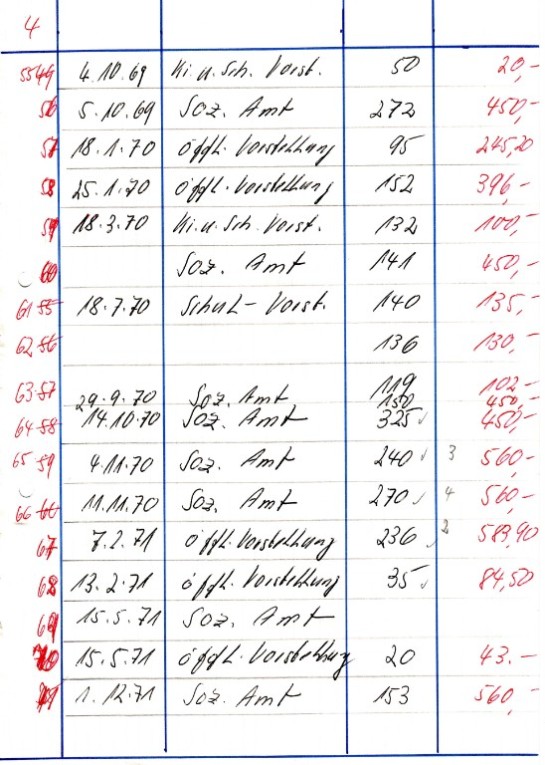 4
55 4.10.69 Ki.u.Sch. Vorst. 50 20,-
56 5.10.69 Soz. Amt 272 450,-
57 18.1.70 öffl. Vorstellung 95 245,20
58 25.1.70 öffl. Vorstellung 152 396,-
59 18.3.70 Ki.u.Sch. Vorst. 132 100,-
60 Soz. Amt 141 450,-
61 55 18.7.70 Schul-Vorst. 140 135,-
62 56 136 130,-
63 57 119 102-
29.9.70 Soz. Amt 150 450,-
64 58 14.10.70 Soz. Amt 325 450,-
65 59 4.11.70 Soz. Amt 240 3 560,-
66 60 11.11.70 Soz. Amt 270 4 560,-
67 7.2.71 öffl. Vorstellung 236 2 589,90
68 13.2.71 öffl. Vorstellung 35 84,50
69 15.5.71 Soz. Amt
70 15.5.71 öffl. Vorstellung 20 43.-
71 1.12.71 Soz. Amt 153 560,-